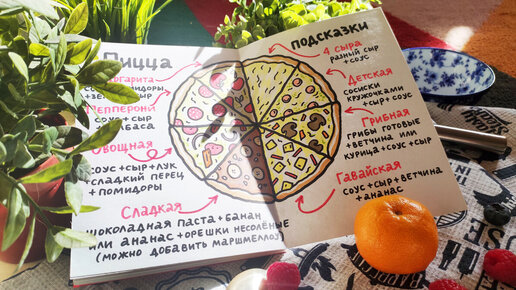 Пицца
Маргарита
соус+помидоры
+сыр
Пепперони
соус+сыр
+колбаса
Овощная
соус+сыр+лук
+сладкий перец
+помидоры
Сладкая
шоколадная паста+банан
или ананас+орешки несолёные
(можно добавить маршмеллоу)
подсказки
4 сыра
разный сыр
+соус
Детская
сосиски
кружочками
+сыр+соус
Грибная
грибы готовые
+ветчина или
курица+соус+сыр
Гавайская
соус+сыр+ветчина
+ананас